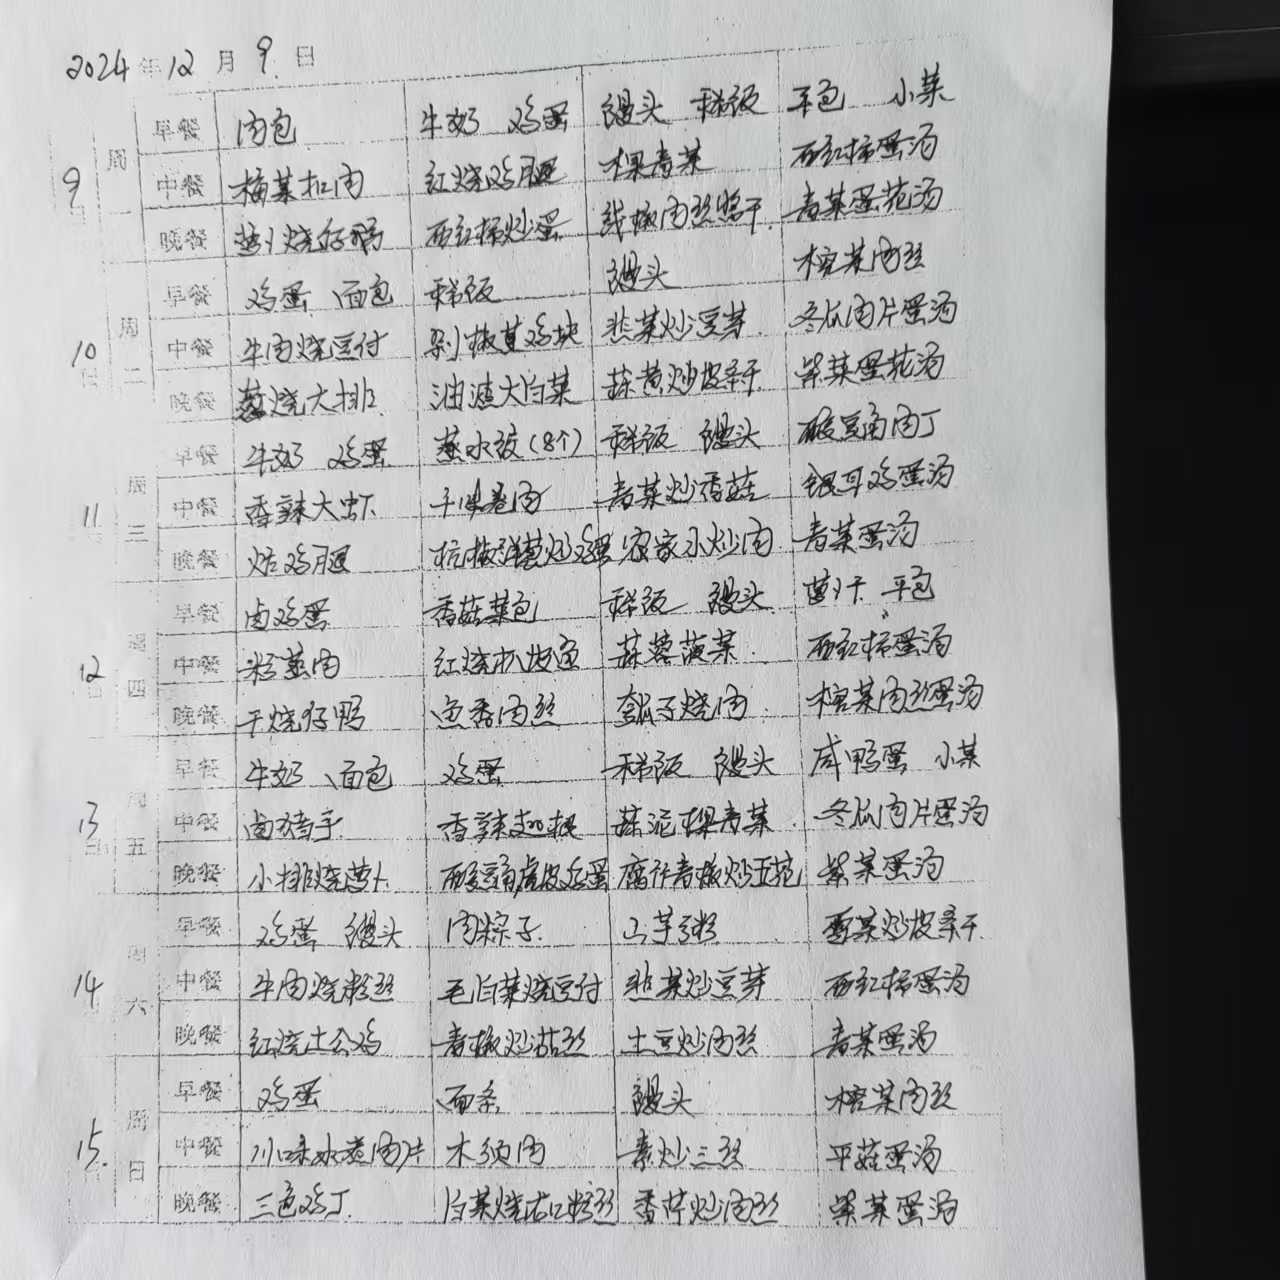 2024年12月9日
早餐 肉包 牛奶 鸡蛋 馒头 稀饭 平包 小菜
9日 周一 中餐 梅菜扣肉 红烧鸡腿 棵青菜 西红柿蛋汤
晚餐 烧仔鸭 西红柿炒蛋 线椒肉丝干 青菜蛋花汤
早餐 鸡蛋 面包 稀饭 馒头 榨菜肉丝
10日 周二 中餐 牛肉烧豆付 剁椒鸡块 韭菜炒豆芽 冬瓜肉片蛋汤
晚餐 葱烧大排 油渣大白菜 蒜黄炒皮条干 紫菜蛋花汤
早餐 牛奶 鸡蛋 蒸水饺(8个) 稀饭 馒头 酸豆角肉丁
11日 周三 中餐 香辣大虾 千张卷肉 青菜炒香菇 银耳鸡蛋汤
晚餐 炸鸡腿 杭椒洋葱炒鸡蛋 农家小炒肉 青菜蛋汤
早餐 卤鸡蛋 香菇菜包 稀饭 馒头 萝卜干 平包
12日 周四 中餐 粉蒸肉 红烧扒皮鱼 蒜蓉菠菜 西红柿蛋汤
晚餐 干烧仔鸭 鱼香肉丝 瓠子烧肉 榨菜肉丝蛋汤
早餐 牛奶 面包 鸡蛋 稀饭 馒头 咸鸭蛋 小菜
13日 周五 中餐 卤猪手 香辣翅根 蒜泥棵青菜 冬瓜肉片蛋汤
晚餐 小排烧萝卜 酸豆角虎皮鸡蛋 腐竹青椒炒五花 紫菜蛋汤
早餐 鸡蛋 馒头 肉粽子 山芋粥 雪菜炒皮条干
14 周六 中餐 牛肉烧粉丝 毛白菜烧豆付 韭菜炒豆芽 西红柿蛋汤
晚餐 红烧土公鸡 青椒炒菇丝 土豆炒肉丝 青菜蛋汤
早餐 鸡蛋 面条 馒头 榨菜肉丝
15 周日 中餐 川味水煮肉片 木须肉 素炒三丝 平菇蛋汤
晚餐 三色鸡丁 白菜烧粉丝 香芹炒肉丝 紫菜蛋汤